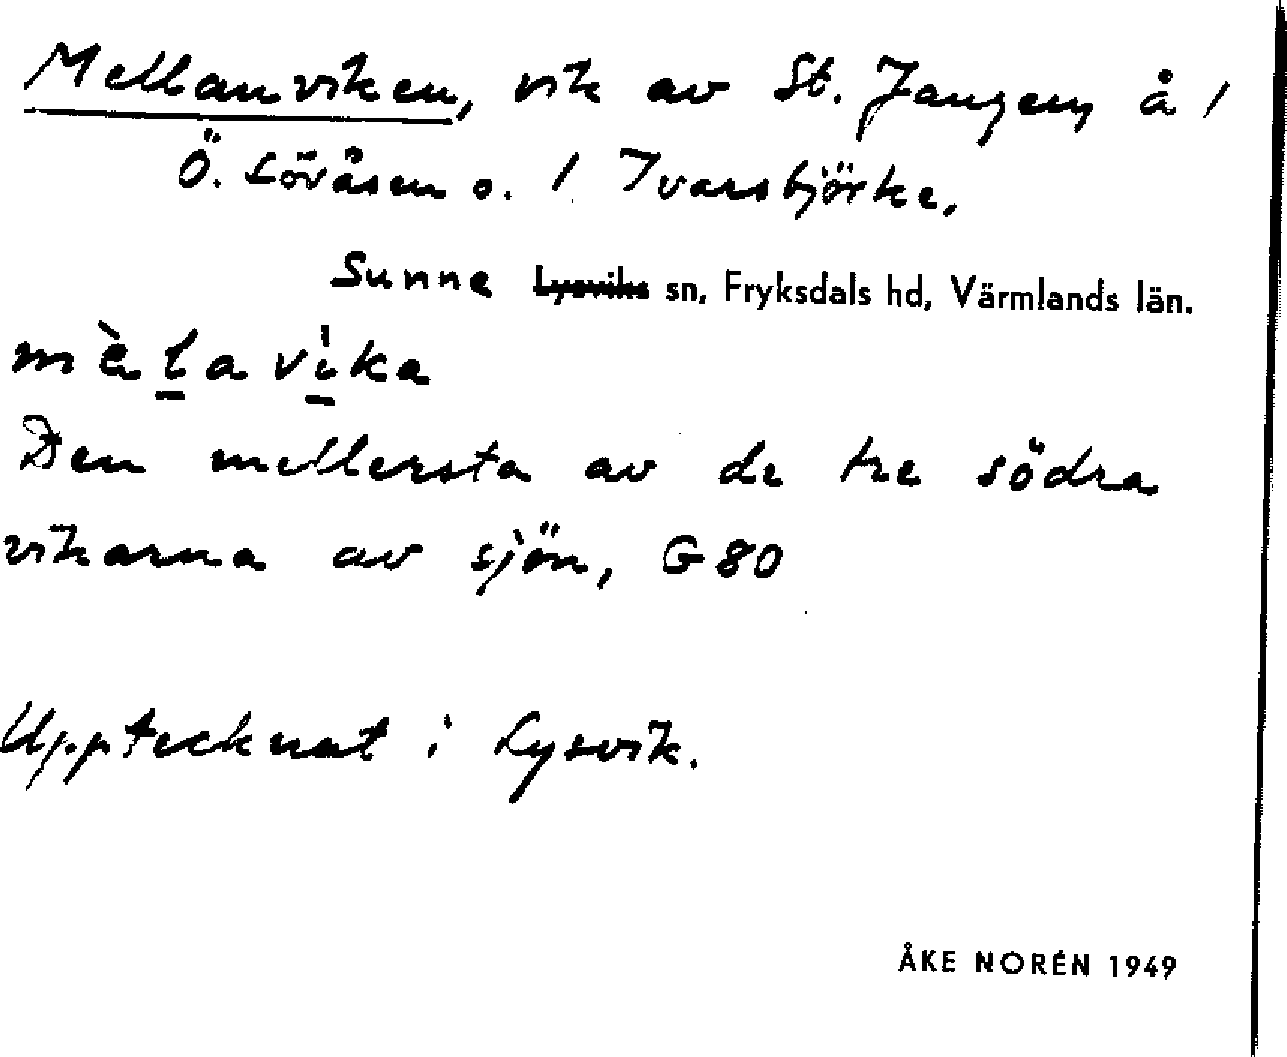 Mellanviken, vik av St. Jangen, å 1
Ö. Löråsen o. 1 Ivarsbjörke.
Sunne Lysviks sn, Fryksdals hd, Värmlands län.
mèlavika
Den mellersta av de tre södra
vikarna av sjön, G80
Upptecknat i Lysvik.
ÅKE NORÉN 1949